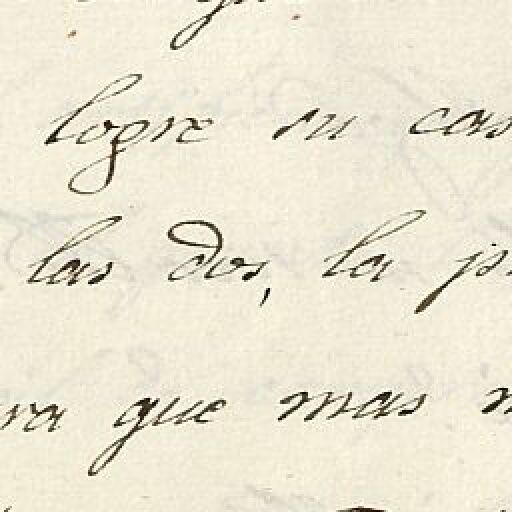 logre su cas
las dos, la p
ra que mas